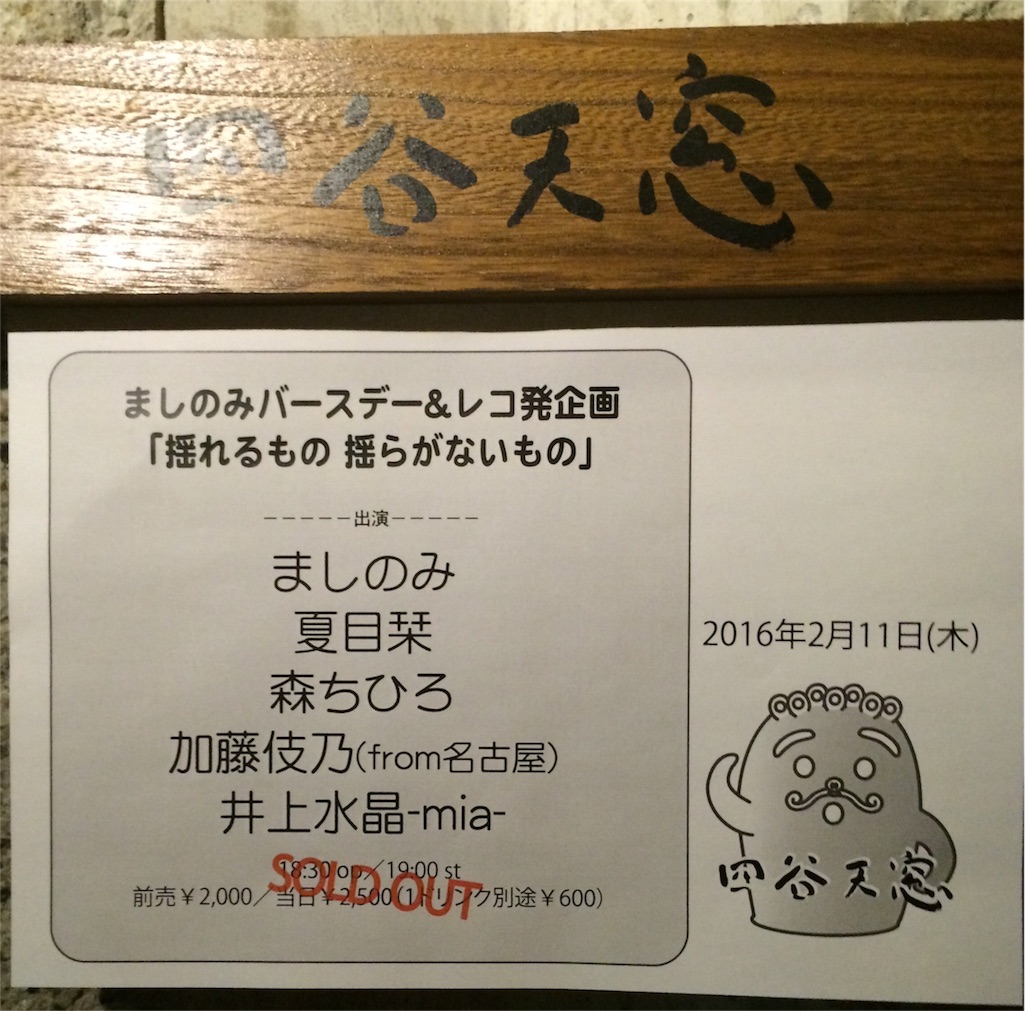 四谷天窓
ましのみバースデー&レコ発企画
「揺れるもの 揺らがないもの」
-----出演-----
ましのみ
夏目栞
森ちひろ
加藤伎乃(from名古屋)
井上水晶-mia-
18:30 op／19:00 st
前売￥2,000／当日￥2,500(1ドリンク別途￥600)
SOLD OUT
2016年2月11日(木)
四谷天窓